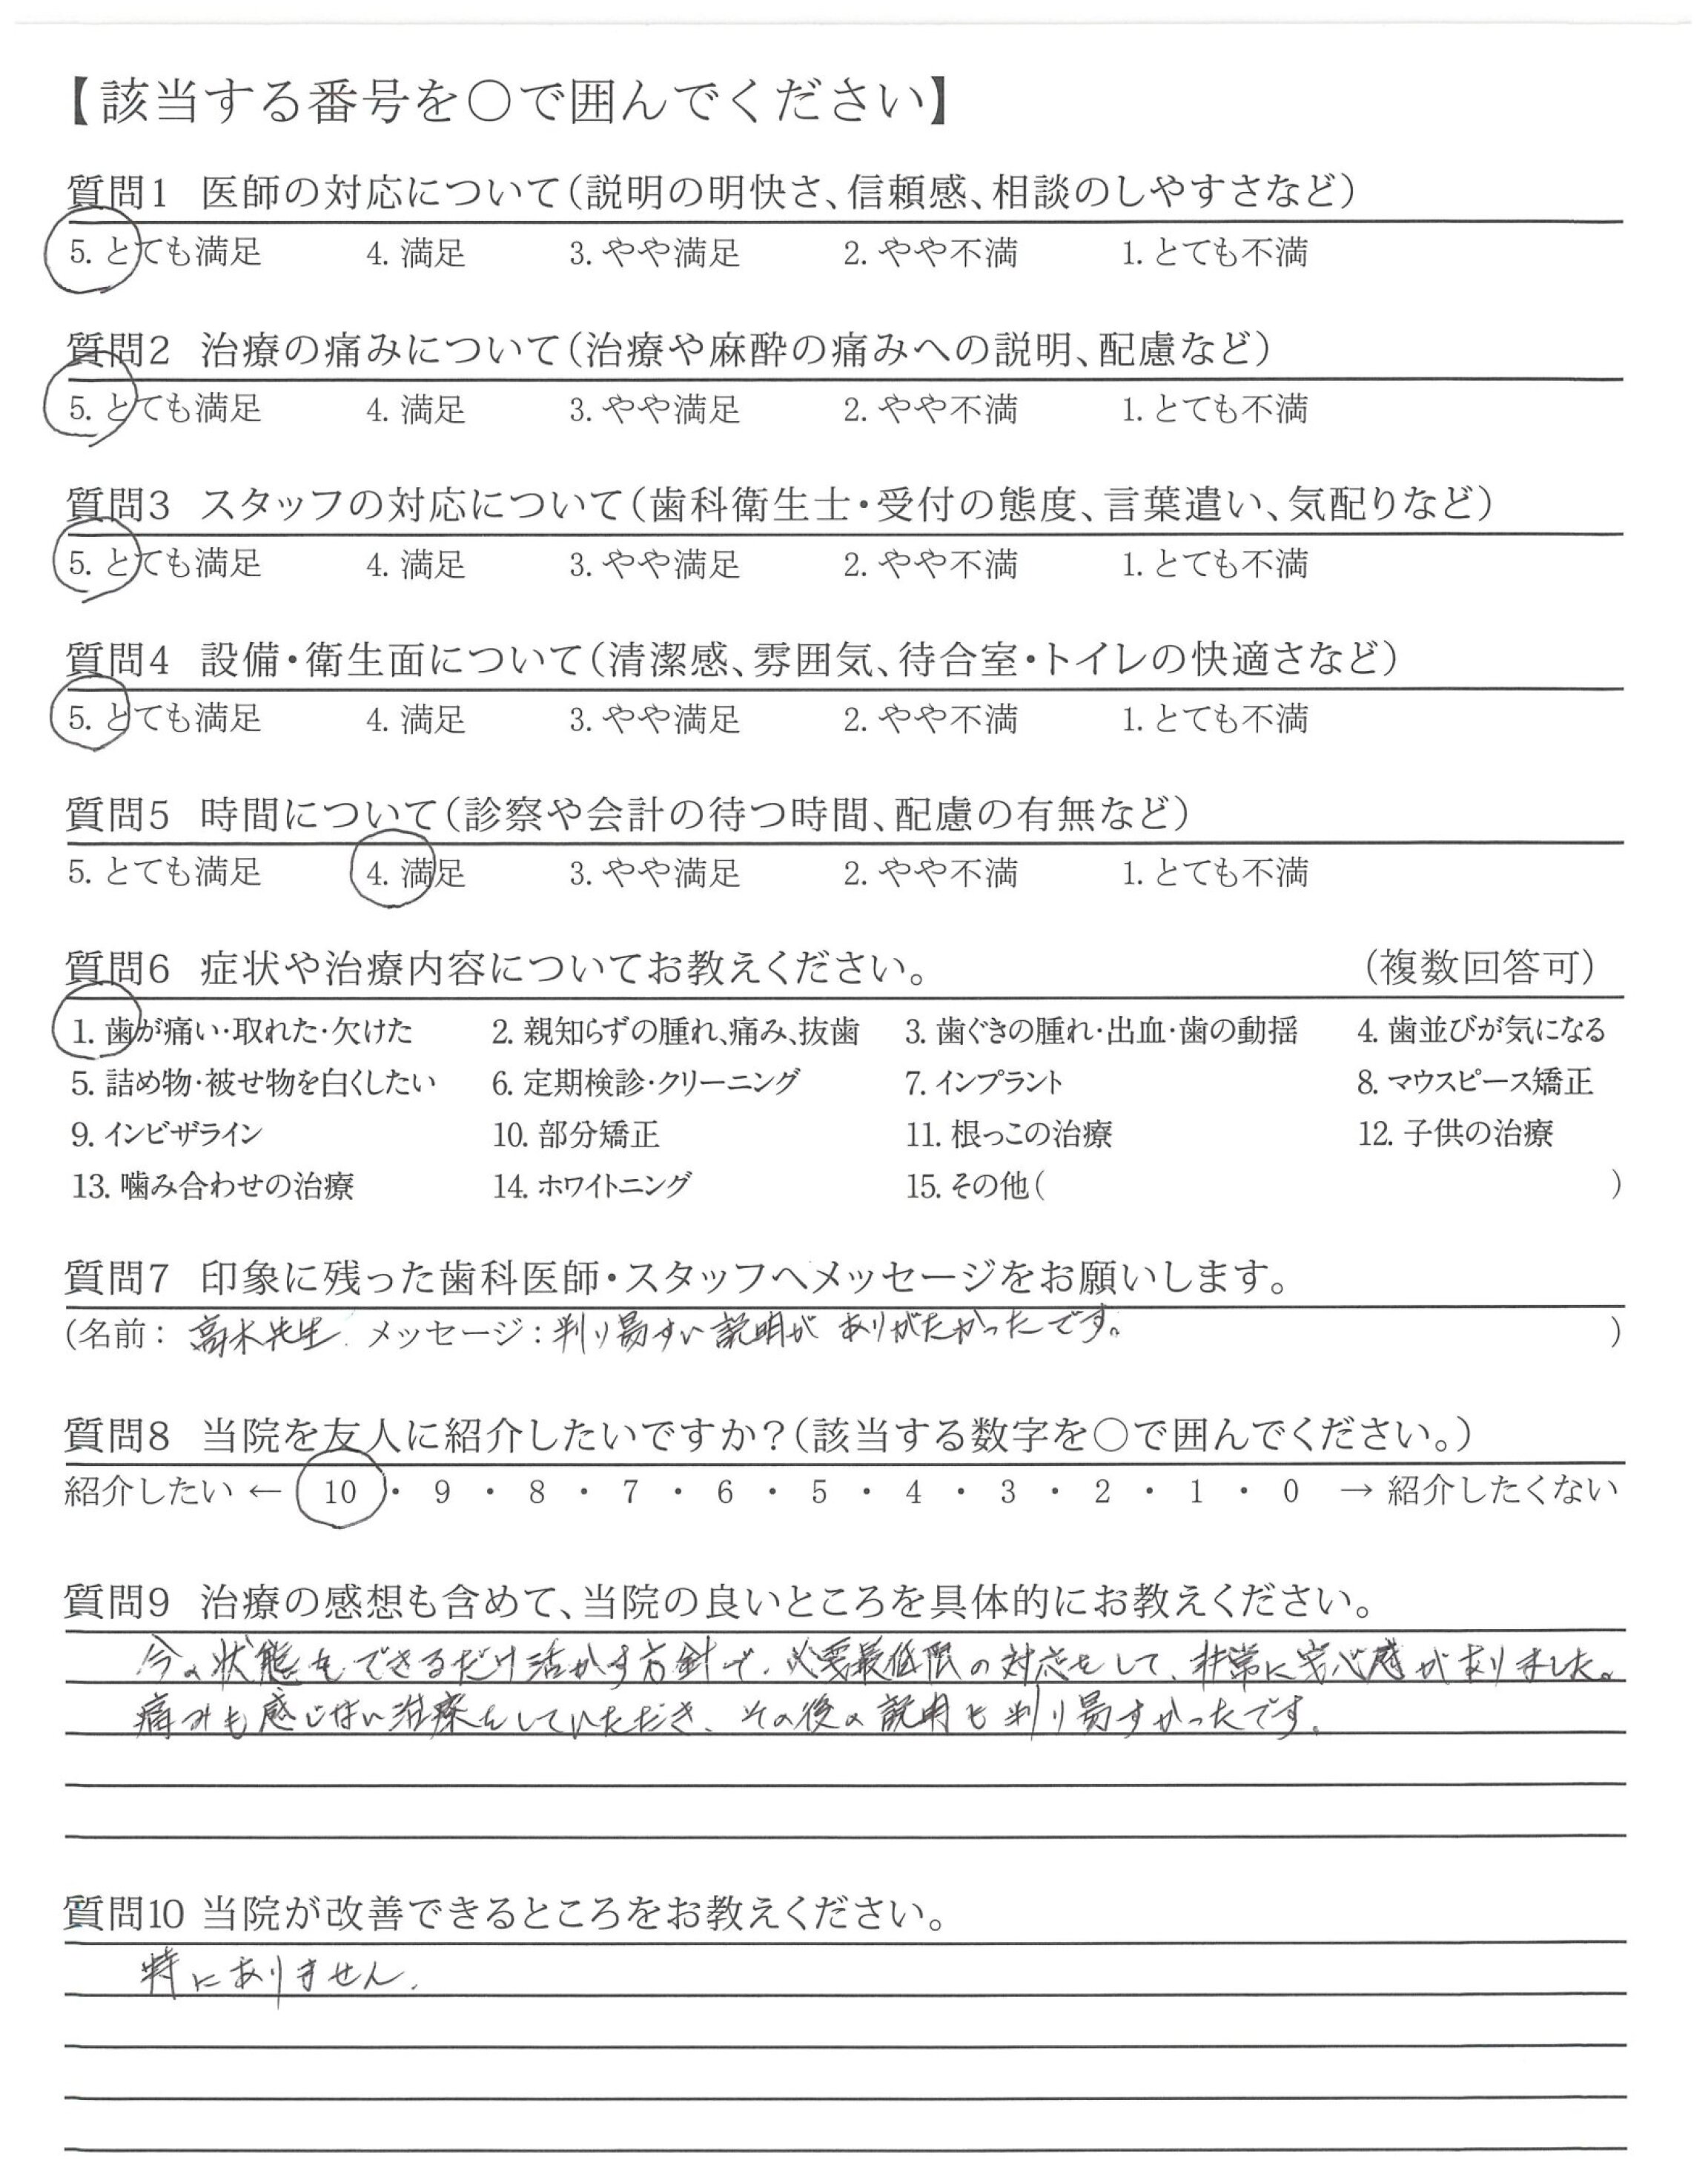 【該当する番号を〇で囲んでください】
質問1 医師の対応について(説明の明快さ、信頼感、相談のしやすさなど)
5. とても満足 4. 満足 3. やや満足 2. やや不満 1. とても不満
質問2 治療の痛みについて(治療や麻酔の痛みへの説明、配慮など)
5. とても満足 4. 満足 3. やや満足 2. やや不満 1. とても不満
質問3 スタッフの対応について(歯科衛生士・受付の態度、言葉遣い、気配りなど)
5. とても満足 4. 満足 3. やや満足 2. やや不満 1. とても不満
質問4 設備・衛生面について(清潔感、雰囲気、待合室・トイレの快適さなど)
5. とても満足 4. 満足 3. やや満足 2. やや不満 1. とても不満
質問5 時間について(診察や会計の待つ時間、配慮の有無など)
5. とても満足 4. 満足 3. やや満足 2. やや不満 1. とても不満
質問6 症状や治療内容についてお教えください。 (複数回答可)
1. 歯が痛い・取れた・欠けた 2. 親知らずの腫れ、痛み、抜歯 3. 歯ぐきの腫れ・出血・歯の動揺 4. 歯並びが気になる
5. 詰め物・被せ物を白くしたい 6. 定期検診・クリーニング 7. インプラント 8. マウスピース矯正
9. インビザライン 10. 部分矯正 11. 根っこの治療 12. 子供の治療
13. 噛み合わせの治療 14. ホワイトニング 15. その他( )
質問7 印象に残った歯科医師・スタッフへメッセージをお願いします。
(名前: 高木先生 メッセージ: 判り易すい説明が ありがたかったです。 )
質問8 当院を友人に紹介したいですか?(該当する数字を〇で囲んでください。)
紹介したい ← 10 ・ 9 ・ 8 ・ 7 ・ 6 ・ 5 ・ 4 ・ 3 ・ 2 ・ 1 ・ 0 → 紹介したくない
質問9 治療の感想も含めて、当院の良いところを具体的にお教えください。
今の状態をできるだけ活かす方針で、必要最低限の対応をして、非常に安心感がありました。
痛みも感じない治療をしていただき、その後の説明も判り易すかったです。
質問10 当院が改善できるところをお教えください。
特にありません.